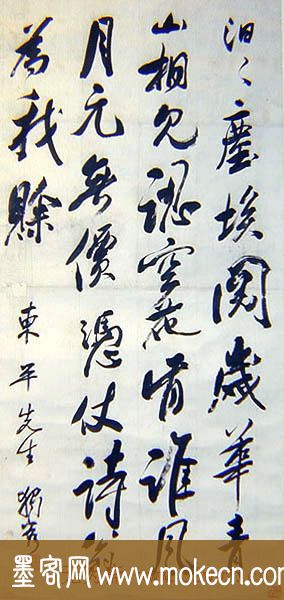 汩〻塵埃閱歲華青
山相見認空花誰風
月元無價憑仗詩翁
為我賒
東平先生 獨秀
墨客网 www.mokecn.com